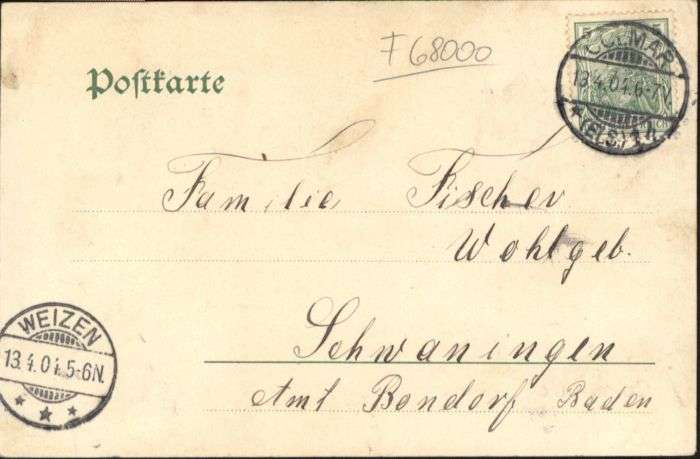 F 68000
COLMAR
13.4.01.6-7
(ELS.) 1
Postkarte
Familie Fischer
Wohlgeb.
Schwaningen
Amt Bondorf Baden
WEIZEN
13.4.01.5-6N.